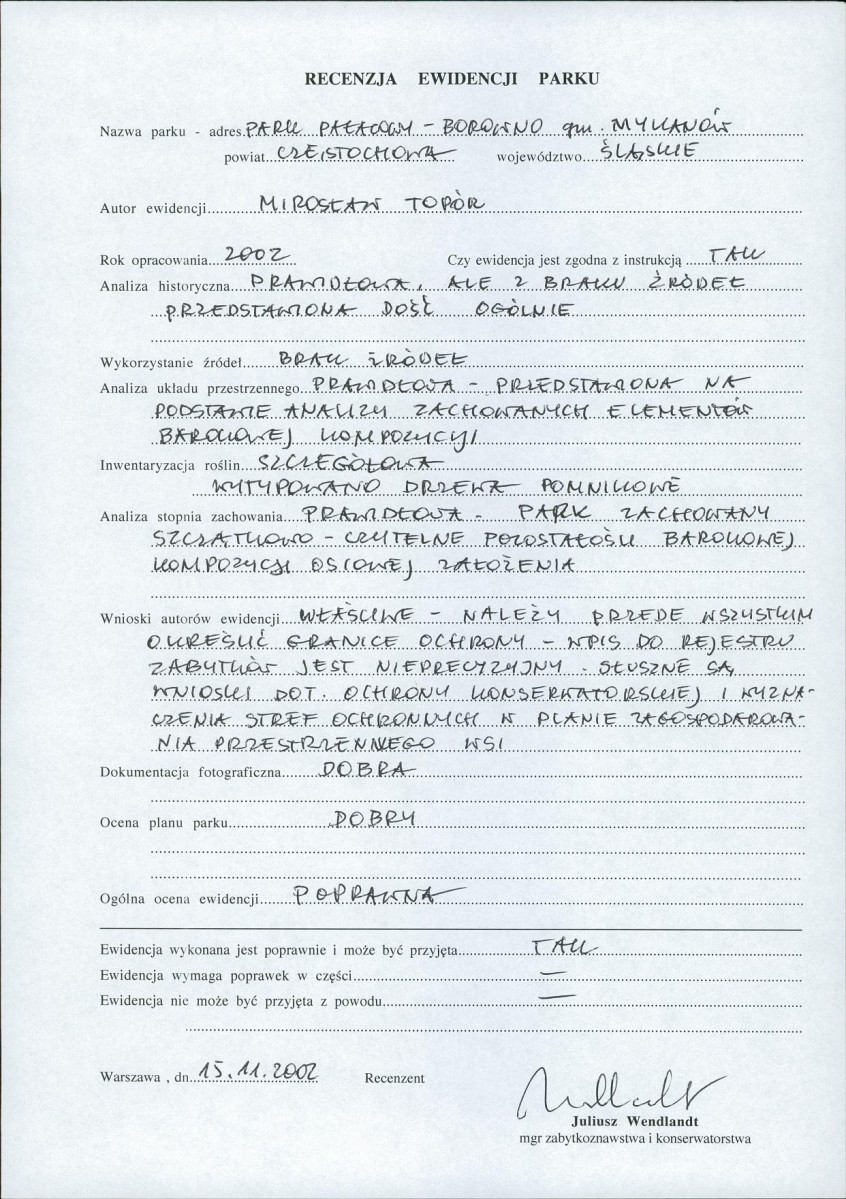 RECENZJA EWIDENCJI PARKU
Nazwa parku - adres PARK PAŁACOWY – BOROWNO gm. MYKANÓW
powiat CZĘSTOCHOWA województwo ŚLĄSKIE
Autor ewidencji MIROSŁAW TOPÓR
Rok opracowania 2002 Czy ewidencja jest zgodna z instrukcją TAK
Analiza historyczna PRAWIDŁOWA, ALE Z BRAKU ŹRÓDEŁ
PRZEDSTAWIONA DOŚĆ OGÓLNIE
Wykorzystanie źródeł BRAK ŹRÓDEŁ
Analiza układu przestrzennego PRAWIDŁOWA – PRZEDSTAWIONA NA
PODSTAWIE ANALIZY ZACHOWANYCH ELEMENTÓW
BAROKOWEJ KOMPOZYCJI
Inwentaryzacja roślin SZCZEGÓŁOWA
WYTYPOWANO DRZEWA POMNIKOWE
Analiza stopnia zachowania PRAWIDŁOWA – PARK ZACHOWANY
SZCZĄTKOWO – CZYTELNE POZOSTAŁOŚCI BAROKOWEJ
KOMPOZYCJI OSIOWEJ ZAŁOŻENIA
Wnioski autorów ewidencji WŁAŚCIWE – NALEŻY PRZEDE WSZYSTKIM
OKREŚLIĆ GRANICE OCHRONY – WPIS DO REJESTRU
ZABYTKÓW JEST NIEPRECYZYJNY. SŁUSZNE SĄ
WNIOSKI DOT. OCHRONY KONSERWATORSKIEJ I WYZNA-
CZENIA STREF OCHRONNYCH W PLANIE ZAGOSPODAROWA-
NIA PRZESTRZENNEGO WSI
Dokumentacja fotograficzna DOBRA
Ocena planu parku DOBRY
Ogólna ocena ewidencji POPRAWNA
Ewidencja wykonana jest poprawnie i może być przyjęta TAK
Ewidencja wymaga poprawek w części —
Ewidencja nie może być przyjęta z powodu —
Warszawa , dn. 15.11.2002 Recenzent
Juliusz Wendlandt
mgr zabytkoznawstwa i konserwatorstwa